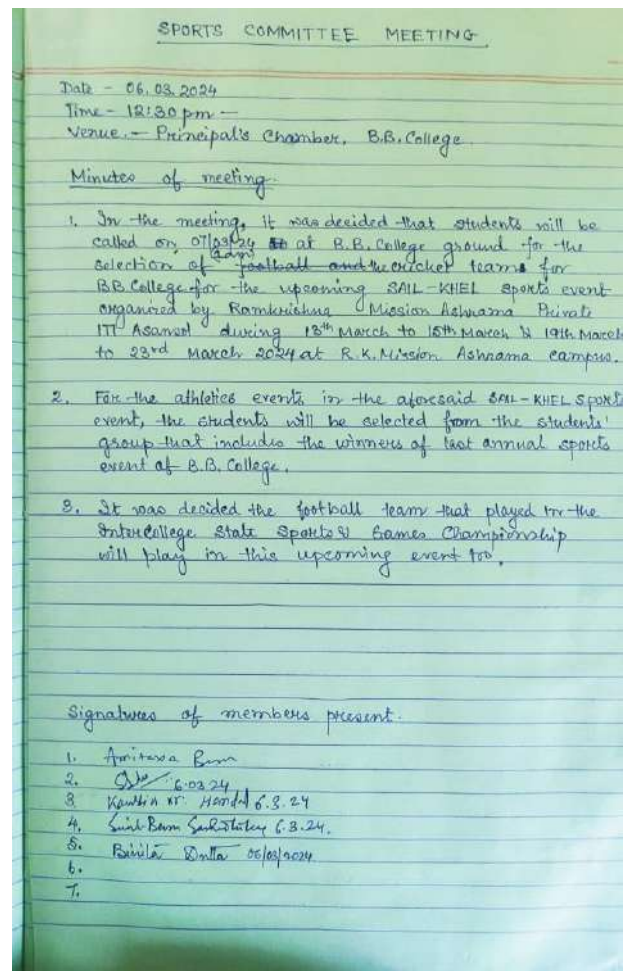 SPORTS COMMITTEE MEETING
Date - 06.03.2024
Time - 12:30 pm -
Venue. - Principal's Chamber, B.B. College
Minutes of meeting.
1. In the meeting, it was decided that students will be
called on 07/03/24 at B.B. College ground for the
selection of football and the cricket teams for
BB College for the upcoming SAIL-KHEL sports event
organized by Ramkrishna Mission Ashrama Private
ITI Asansol during 13th March to 15th March & 19th March
to 23rd March 2024 at R.K. Mission Ashrama campus.
2. For the athletics events in the aforesaid SAIL-KHEL sports
event, the students will be selected from the students'
group that includes the winners of last annual sports
event of B.B. College.
3. It was decided the football team that played in the
Intercollege State Sports & Games Championship
will play in this upcoming event too.
Signatures of members present.
1. Amitava
2. 6.03.24
3. 6.3.24
4. 6.3.24.
5. Dutta 06/03/2024
6.
7.